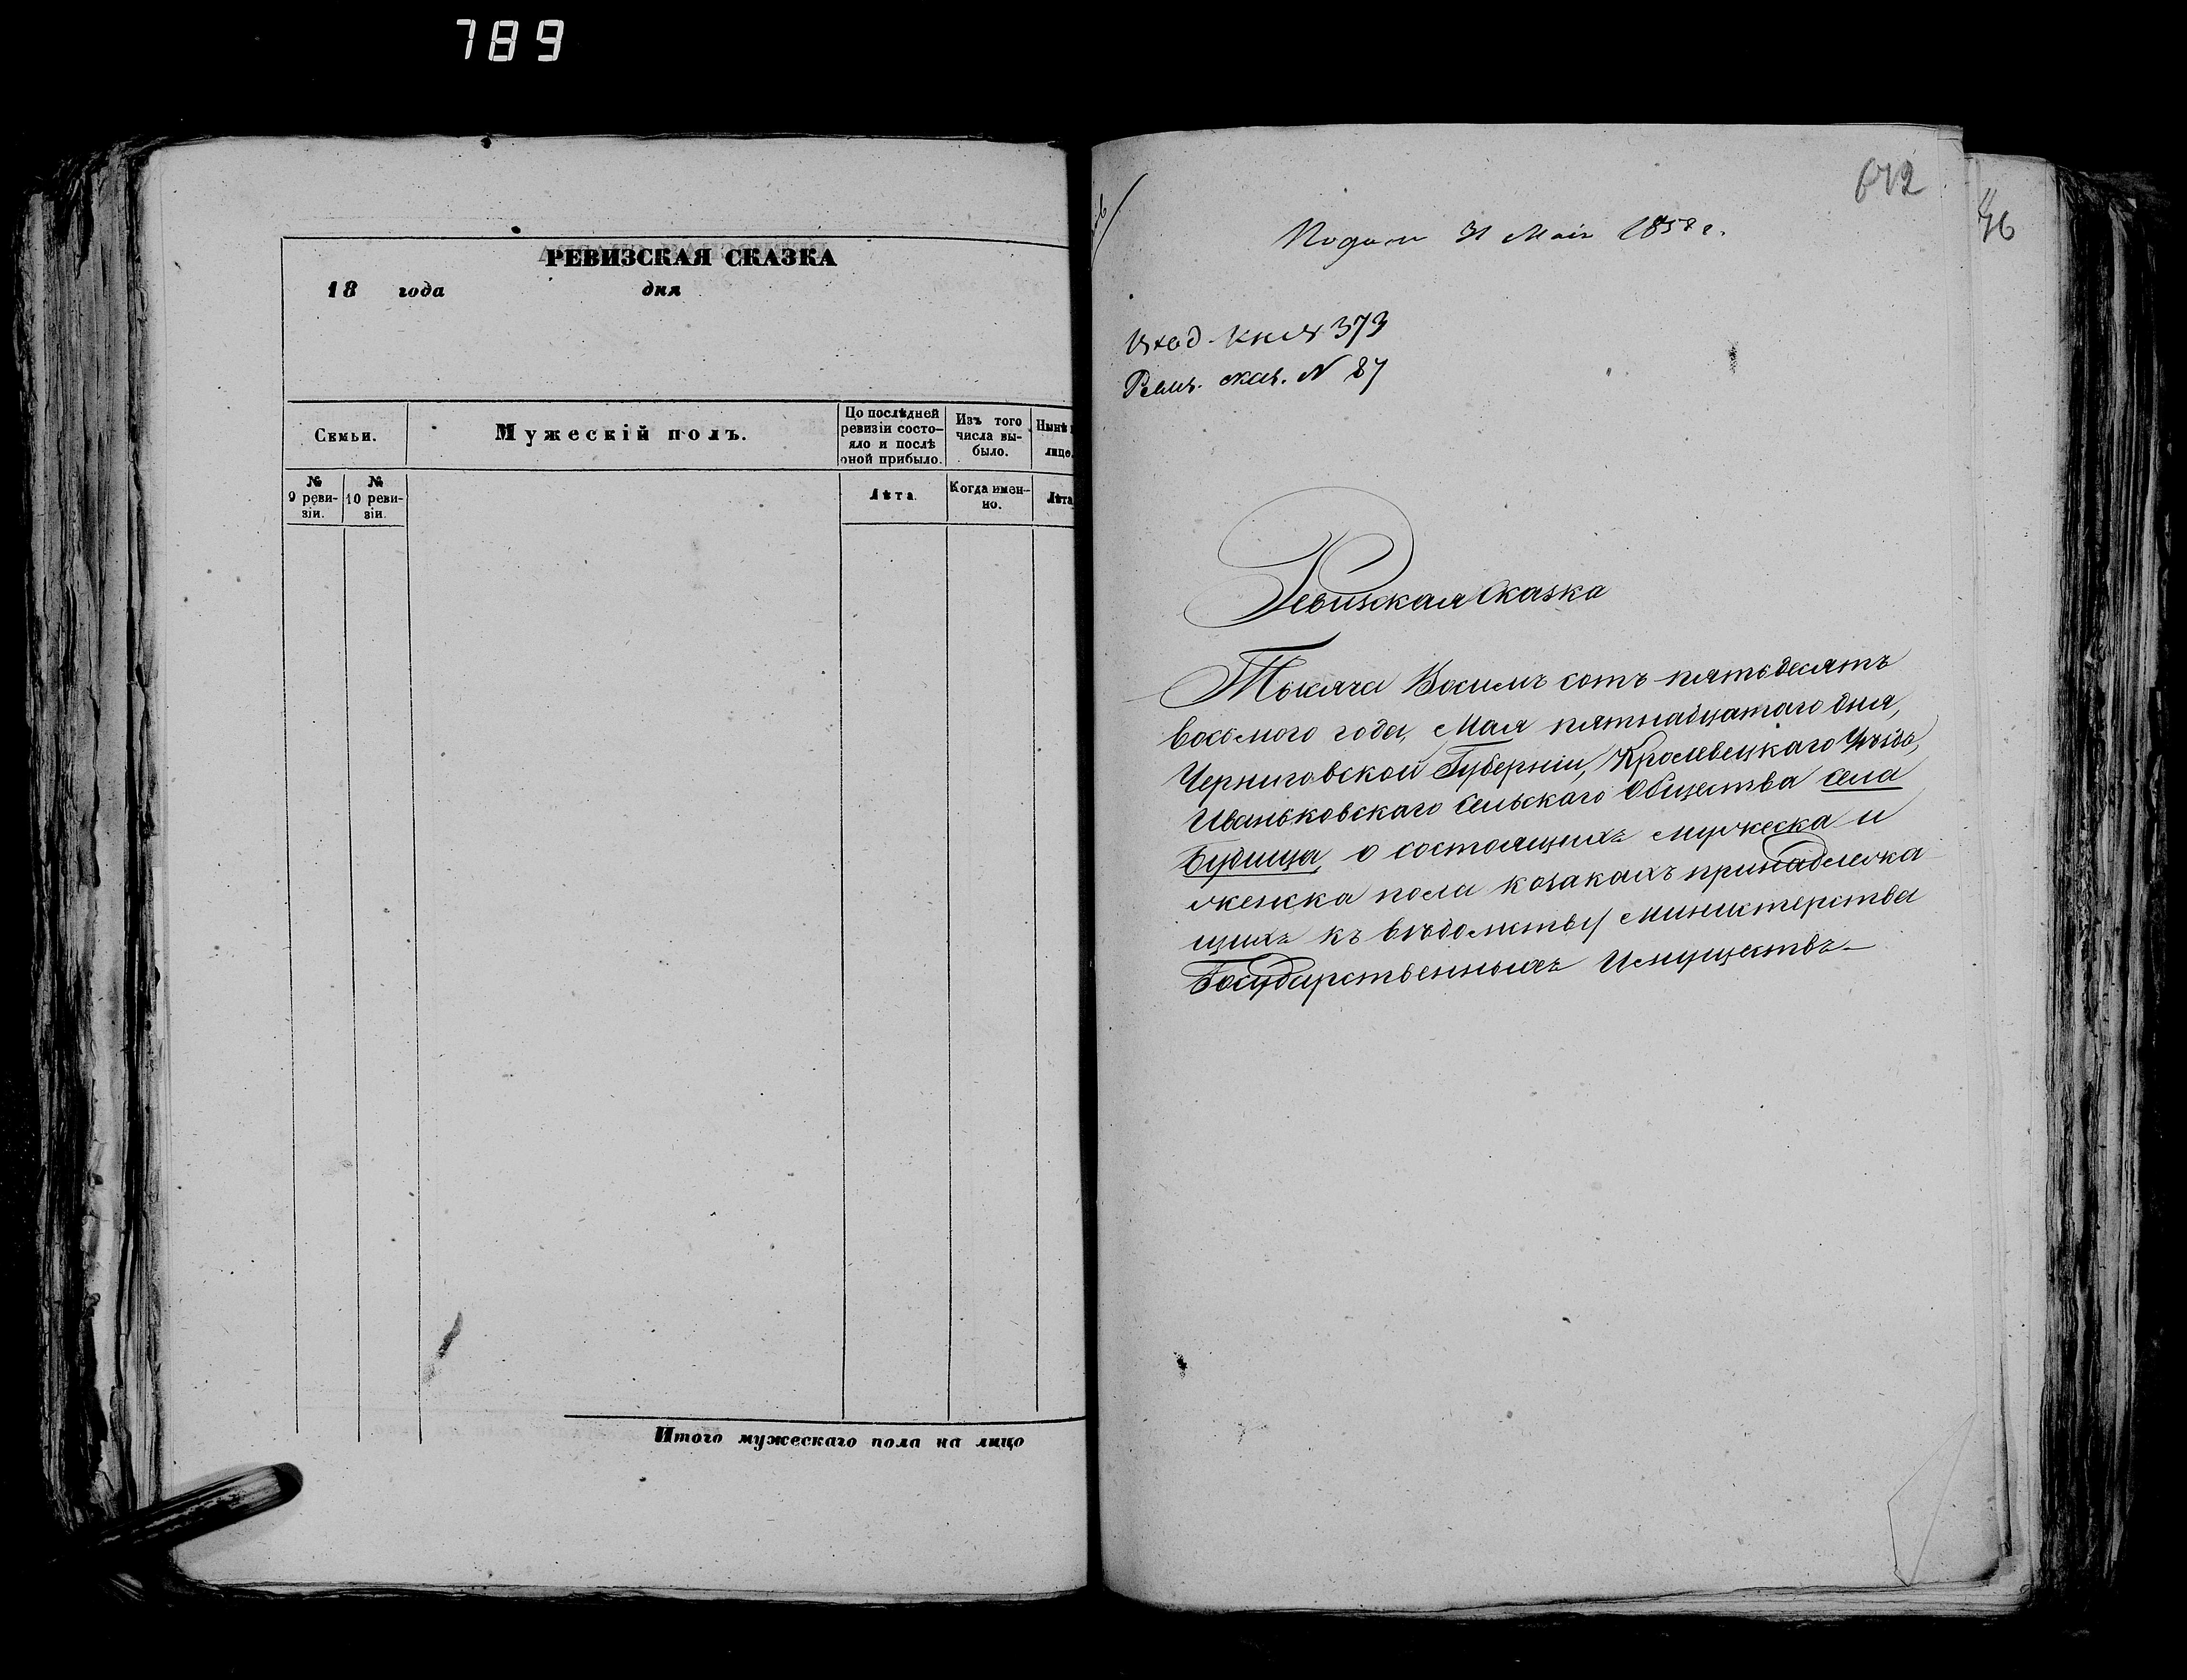 789
РЕВИЗСКАЯ СКАЗКА
18 года дня
Семьи.
Мужескій полъ.
По послѣдней
ревизіи состо-
яло и послѣ
оной прибыло.
Изъ того
числа вы-
было.
Нынѣ
лице.
№
9 реви-
зіи.
№
10 реви-
зіи.
Лѣта.
Когда имен-
но.
Лѣта
Итого мужескаго пола на лицо
642
46
31 Мая 1858 г.
Вход. Кн. № 373
Ревиз. сказ. N 87
Ревизская Сказка
Тысяча Восемь сотъ пятьдесятъ
восьмого года, Мая пятнадцатаго дня,
Черниговской Губерніи, Кролевецкаго Уѣзда,
Иваньковскаго Сельскаго Общества села
Будища, о состоящихъ мужеска и
женска пола козакахъ принадлежа
щихъ къ вѣдомству Министерства
Государственныхъ Имуществъ